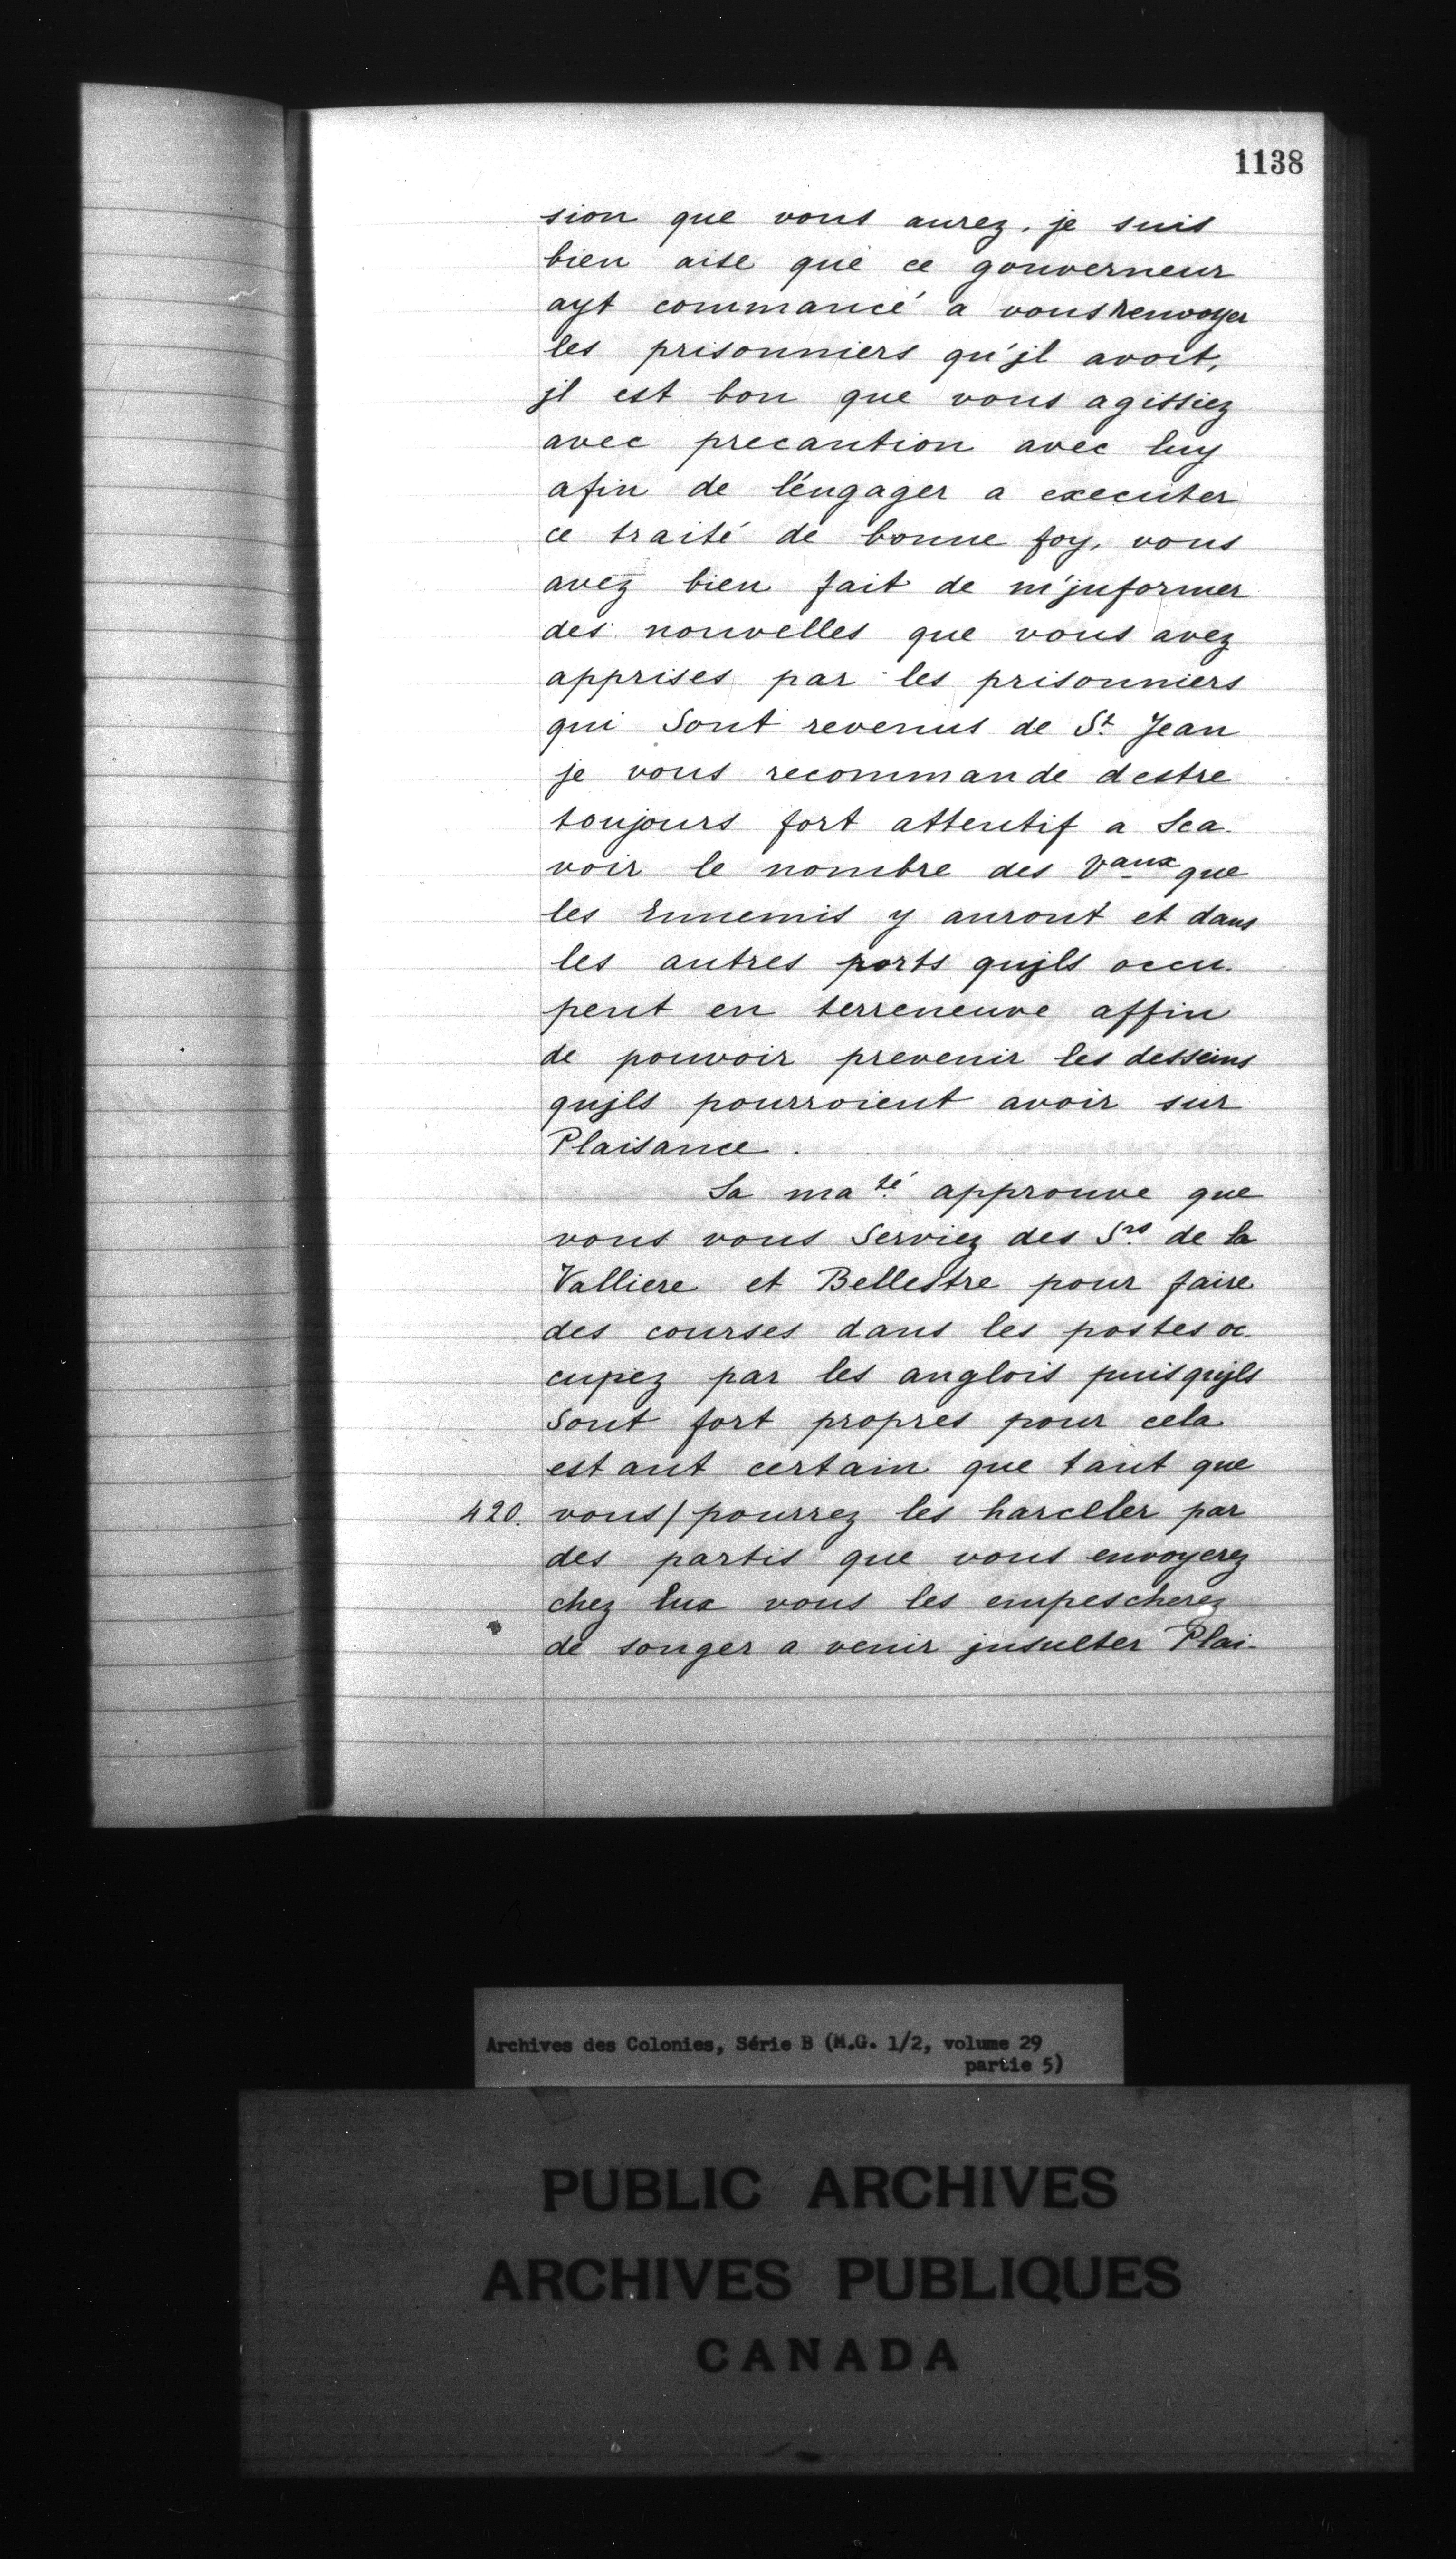 1138
sion que vous aurez. je suis
bien aise que ce gouverneur
ayt commancé a vous renvoyer
les prisonniers qu'jl avoit,
jl est bon que vous agissiez
avec precaution avec luy
afin de l'éngager a executer
ce traité de bonne foy, vous
avez bien fait de m'jnformer
des nouvelles que vous avez
apprises par les prisonniers
qui Sont revenus de St Jean
je vous recommande destre
toujours fort attentif a Sca-
voir le nombre des Vaux que
les Ennemis y auront et dans
les autres ports qujls occu-
pent en terreneuve affin
de pouvoir prevenir les desseins
qujls pourroient avoir sur
Plaisance.
Sa maté approuve que
vous vous Serviez des Srs de la
Valliere et Bellestre pour faire
des courses dans les postes oc-
cupez par les anglois puisqujls
Sont fort propres pour cela
estant certain que tant que
420. vous/pourrez les harceler par
des partis que vous envoyerez
chez Eux vous les empescherez
de songer a venir jnsulter Plai-
Archives des Colonies, Série B (M.G. 1/2, volume 29
partie 5)
PUBLIC ARCHIVES
ARCHIVES PUBLIQUES
CANADA